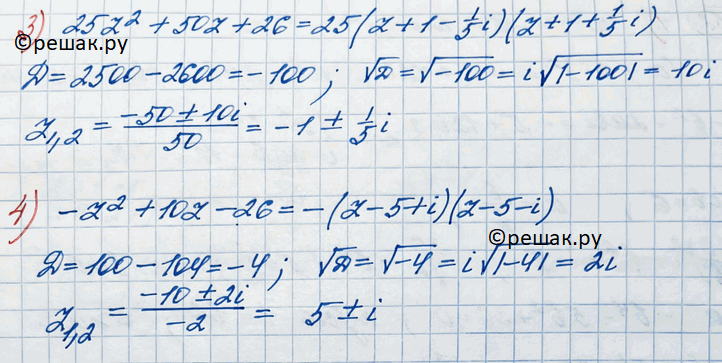 3) 25z² + 50z + 26 = 25(z + 1 - 1/5 i)(z + 1 + 1/5 i)
©решак.ру
Д = 2500 - 2600 = -100; √Д = √-100 = i√|-100| = 10i
z₁,₂ = (-50 ± 10i)/50 = -1 ± 1/5 i
4) -z² + 10z - 26 = -(z - 5 + i)(z - 5 - i)
©решак.ру
Д = 100 - 104 = -4; √Д = √-4 = i√|-4| = 2i
z₁,₂ = (-10 ± 2i)/-2 = 5 ± i